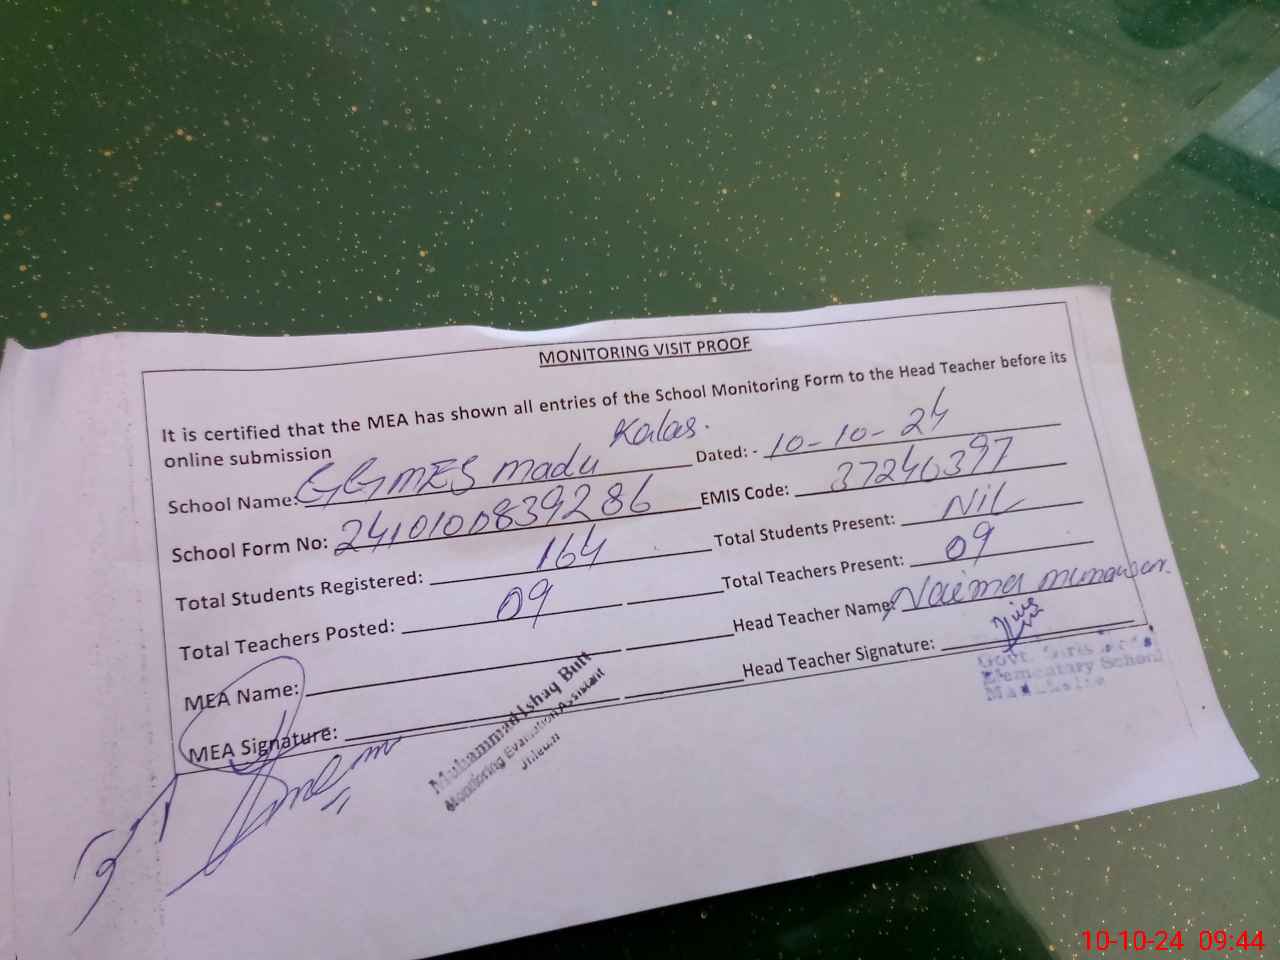 MONITORING VISIT PROOF
It is certified that the MEA has shown all entries of the School Monitoring Form to the Head Teacher before its
online submission
School Name: GGMES madu Kalas. Dated: - 10-10-24
School Form No: 2410100839286 EMIS Code: 37240397
Total Students Registered: 164 Total Students Present: NiL
Total Teachers Posted: 09 Total Teachers Present: 09
MEA Name: Head Teacher Name: Naima munawar.
MEA Signature: Head Teacher Signature:
Muhammad Ishaq Butt
Monitoring Evaluation Assistant
Jhelum
Govt. Girls
Elementary School
10-10-24 09:44